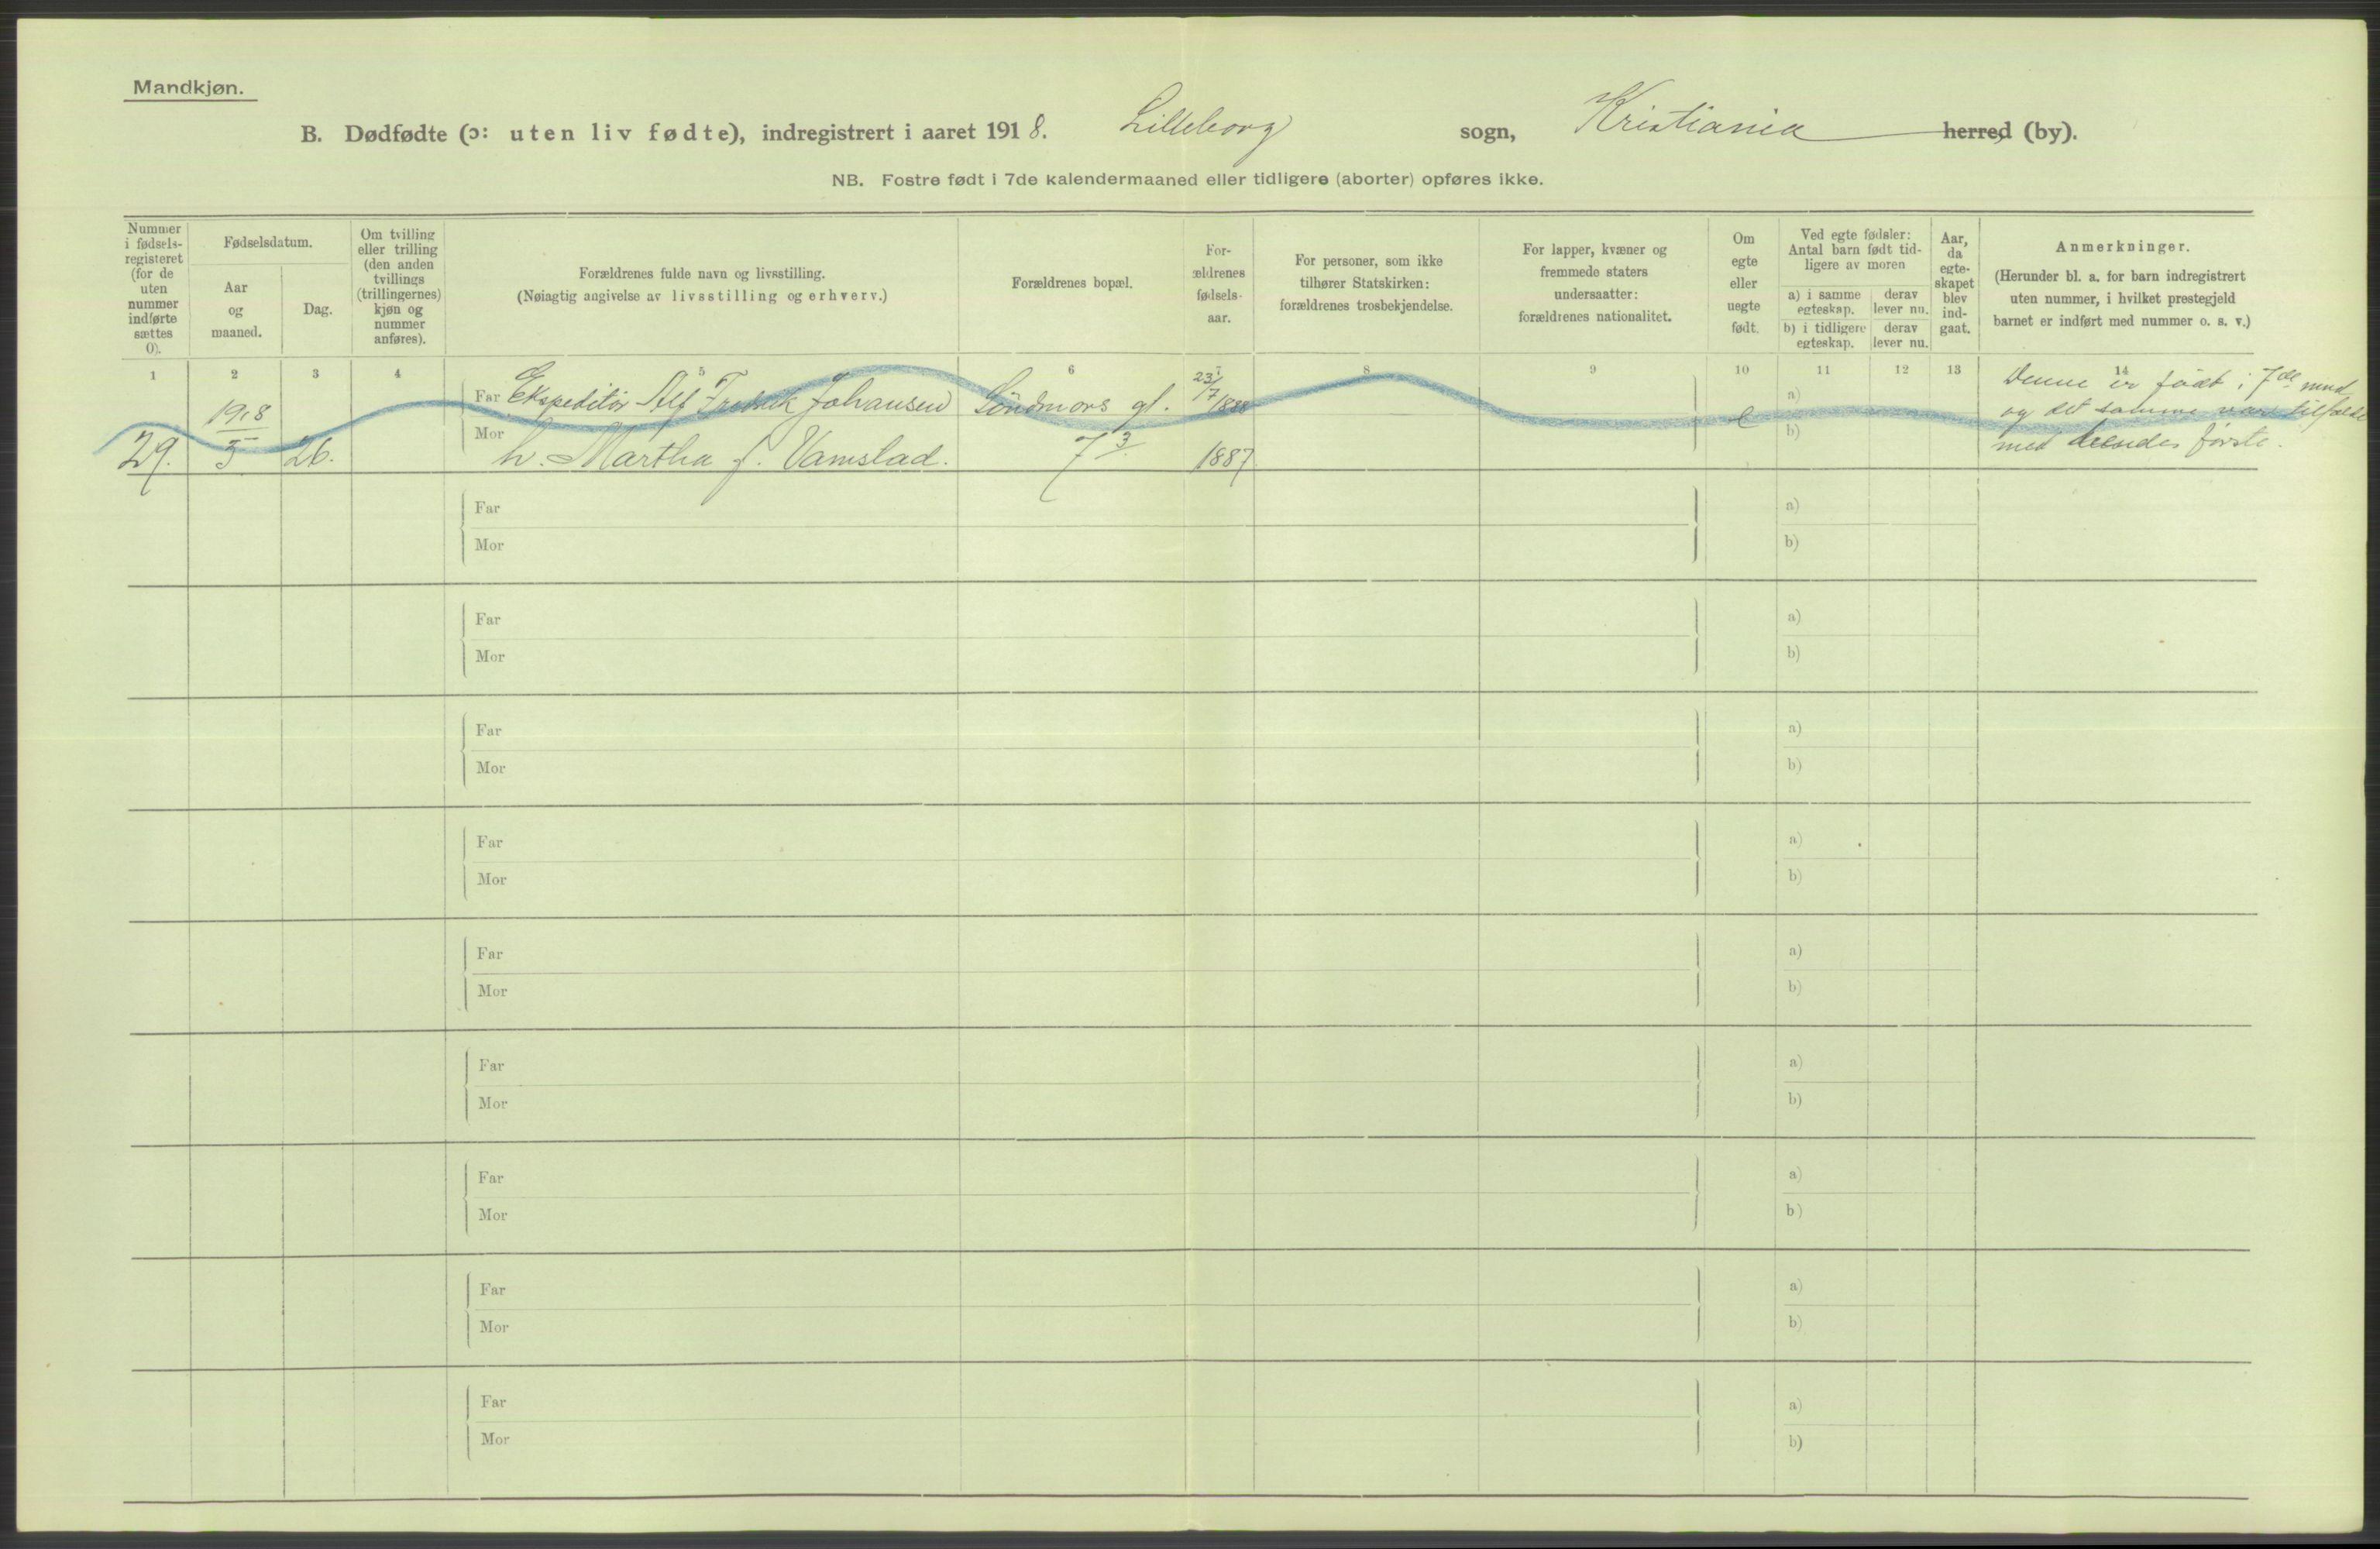 Mandkjøn.
B. Dødfødte (ɔ: uten liv fødte), indregistrert i aaret 1918. Lilleborg sogn, Kristiania herred (by).
NB. Fostre født i 7de kalendermaaned eller tidligere (aborter) opføres ikke.
Nummer
i fødsels-
registeret
(for de
uten
nummer
indførte
sættes
0).
Fødselsdatum.
Aar
og
maaned.
Dag.
Om tvilling
eller trilling
(den anden
tvillings
(trillingernes)
kjøn og
nummer
anføres).
Forældrenes fulde navn og livsstilling.
(Nøiagtig angivelse av livsstilling og erhverv.)
Forældrenes bopæl.
For-
ældrenes
fødsels-
aar.
For personer, som ikke
tilhører Statskirken:
forældrenes trosbekjendelse.
For lapper, kvæner og
fremmede staters
undersaatter:
forældrenes nationalitet.
Om
egte
eller
uegte
født.
Ved egte fødsler:
Antal barn født tid-
ligere av moren
a) i samme
egteskap.
derav
lever nu.
b) i tidligere
egteskap.
derav
lever nu.
Aar,
da
egte-
skapet
blev
ind-
gaat.
Anmerkninger.
(Herunder bl. a. for barn indregistrert
uten nummer, i hvilket prestegjeld
barnet er indført med nummer o. s. v.)
1 2 3 4 5 6 7 8 9 10 11 12 13 14
29.
1918
5
26.
Far Ekspeditør Alf Fredrik Johansen
Mor h. Martha f. Vamslad.
Söndmørs gt.
7 3
23/7 1888
1887
e
a)
b)
Denne er født i 7de mnd
og det samme var tilfælde
med deres første.
Far a)
Mor b)
Far a)
Mor b)
Far a)
Mor b)
Far a)
Mor b)
Far a)
Mor b)
Far a)
Mor b)
Far a)
Mor b)
Far a)
Mor b)
Far a)
Mor b)